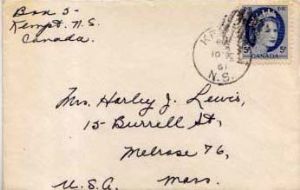 Box 5-
Kempt N.S.
Canada.
KE
10
61
N.S.
5¢ 5¢
CANADA
Mrs. Harley J. Lewis,
15 Burrell St,
Melrose 76,
Mass.
U.S.A.